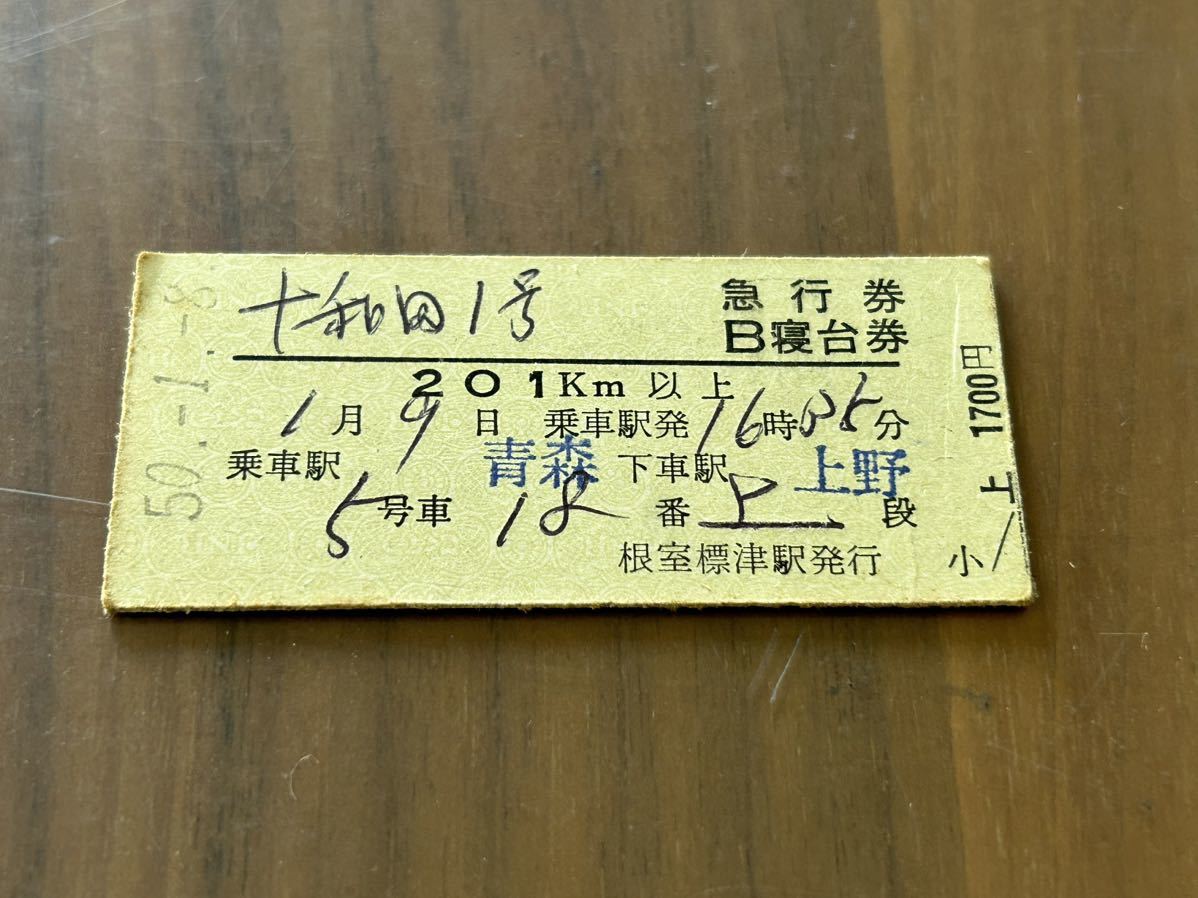 50.-1.-8.
十和田1号 急行券
B寝台券
201Km以上
1月9日 乗車駅発16時05分
乗車駅 青森 下車駅 上野
5号車 18番上段
根室標津駅発行
上 1700円
小